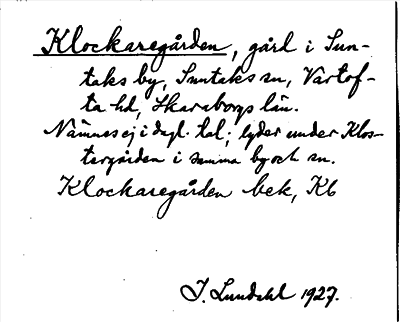 Klockaregården, gård i Sun-
taks by, Suntaks sn, Vartof-
ta hd, Skaraborgs län.
Nämnes ej i dagl. tal; lyder under Klos-
tergården i samma by och sn.
Klockaregården bek, Kb
J. Lundahl 1927.